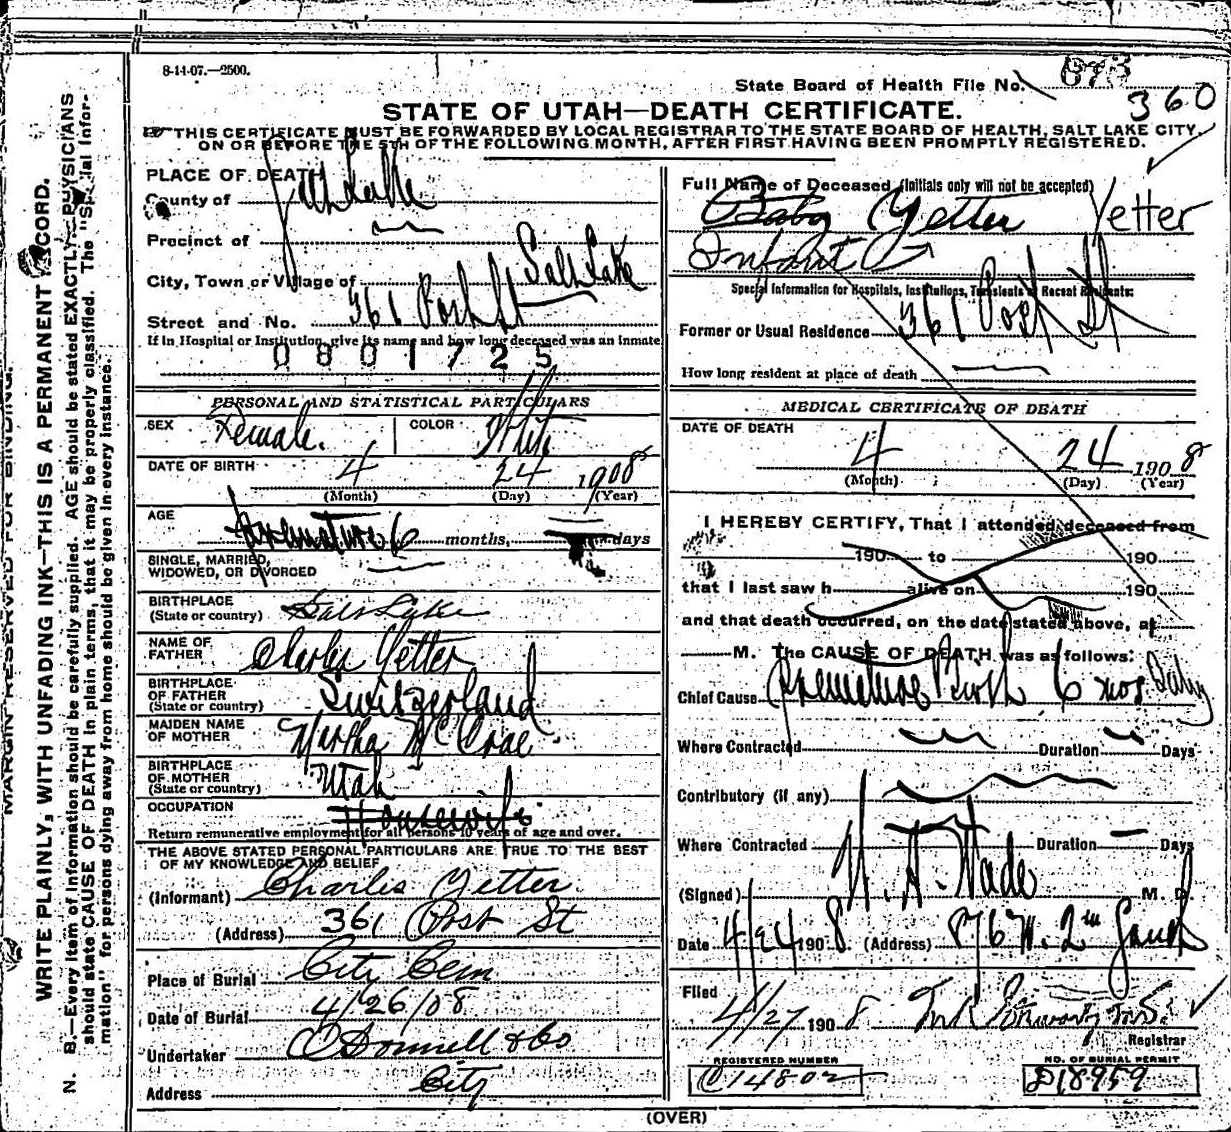 8-14-07.—2500.
State Board of Health File No. 893
360
STATE OF UTAH—DEATH CERTIFICATE.
THIS CERTIFICATE MUST BE FORWARDED BY LOCAL REGISTRAR TO THE STATE BOARD OF HEALTH, SALT LAKE CITY,
ON OR BEFORE THE 5TH OF THE FOLLOWING MONTH, AFTER FIRST HAVING BEEN PROMPTLY REGISTERED.
MARGIN RESERVED FOR BINDING.
WRITE PLAINLY, WITH UNFADING INK—THIS IS A PERMANENT RECORD.
N. B.—Every item of information should be carefully supplied. AGE should be stated EXACTLY. PHYSICIANS
should state CAUSE OF DEATH in plain terms, that it may be properly classified. The "Special Infor-
mation" for persons dying away from home should be given in every instance.
PLACE OF DEATH
County of Salt Lake
Precinct of
City, Town or Village of Salt Lake
Street and No. 361 Post St
If in Hospital or Institution, give its name and how long deceased was an inmate
0801725
PERSONAL AND STATISTICAL PARTICULARS
SEX Female. COLOR White
DATE OF BIRTH 4 24 1908
(Month) (Day) (Year)
AGE premature 6 months, days
SINGLE, MARRIED,
WIDOWED, OR DIVORCED
BIRTHPLACE
(State or country) Salt Lake
NAME OF
FATHER Charles Yetter
BIRTHPLACE
OF FATHER
(State or country) Switzerland
MAIDEN NAME
OF MOTHER Martha McCrae
BIRTHPLACE
OF MOTHER
(State or country) Utah
OCCUPATION Housewife
Return remunerative employment for all persons 10 years of age and over.
THE ABOVE STATED PERSONAL PARTICULARS ARE TRUE TO THE BEST
OF MY KNOWLEDGE AND BELIEF
(Informant) Charles Yetter
(Address) 361 Post St
Place of Burial City Cem
Date of Burial 4/26/08
Undertaker O'Donnell & Co
Address City
Full Name of Deceased (Initials only will not be accepted)
Baby Yetter Yetter
Infant
Special Information for Hospitals, Institutions, Transients or Recent Residents:
Former or Usual Residence 361 Post St
How long resident at place of death
MEDICAL CERTIFICATE OF DEATH
DATE OF DEATH
4 24 1908
(Month) (Day) (Year)
I HEREBY CERTIFY, That I attended deceased from
190 to 190
that I last saw h alive on 190
and that death occurred, on the date stated above, at
M. The CAUSE OF DEATH was as follows:
Chief Cause Premature Birth 6 mos Baby
Where Contracted Duration Days
Contributory (if any)
Where Contracted Duration Days
(Signed) H. A. Wade M. D.
Date 4/24 1908 (Address) 876 W. 2nd South
Filed 4/27 1908
Registrar
REGISTERED NUMBER
C14802
NO. OF BURIAL PERMIT
D18959
(OVER)